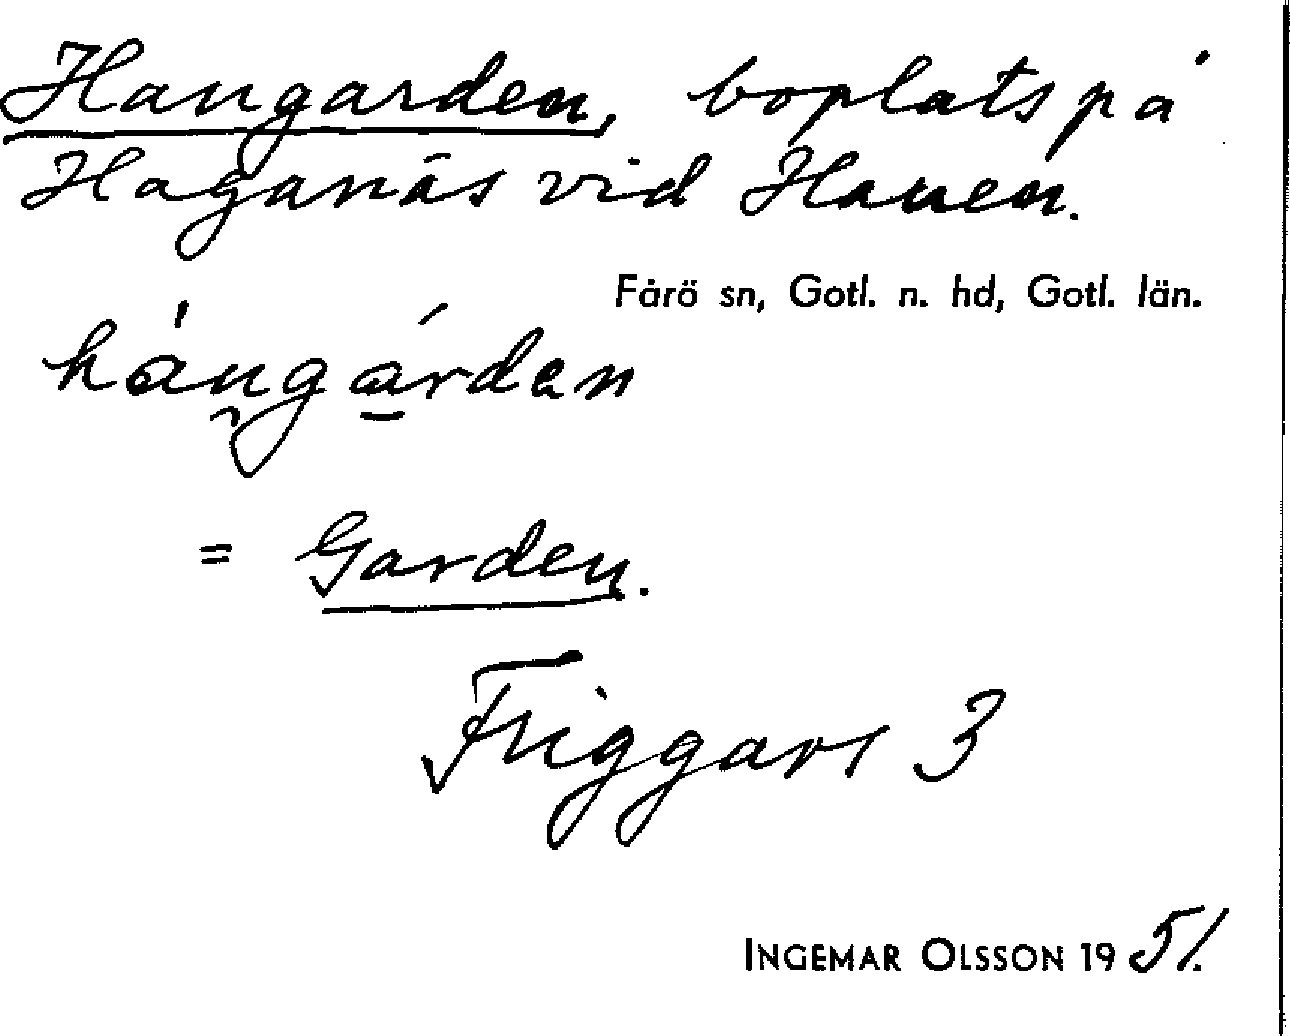 Hangarden, boplats på
Haganäs vid Hauen.
Fårö sn, Gotl. n. hd, Gotl. län.
hángárdan
= Garden.
Friggars 3
INGEMAR OLSSON 1951.